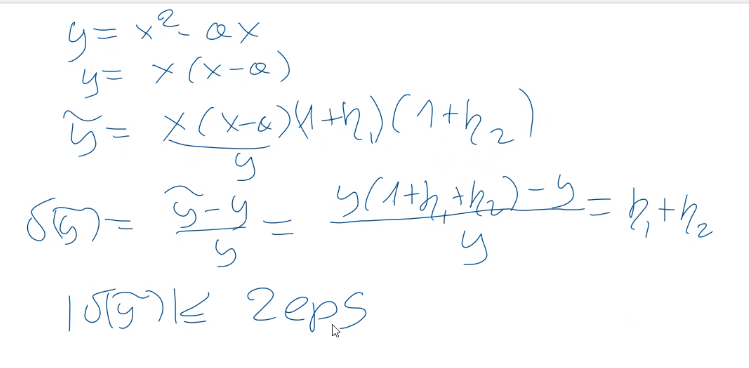 y = x² - ax
y = x(x-a)
ỹ = x(x-a)(1+η₁)(1+η₂)
y
δ(ỹ) = (ỹ-y)/y = (y(1+η₁+η₂)-y)/y = η₁+η₂
|δ(ỹ)| ≤ 2eps